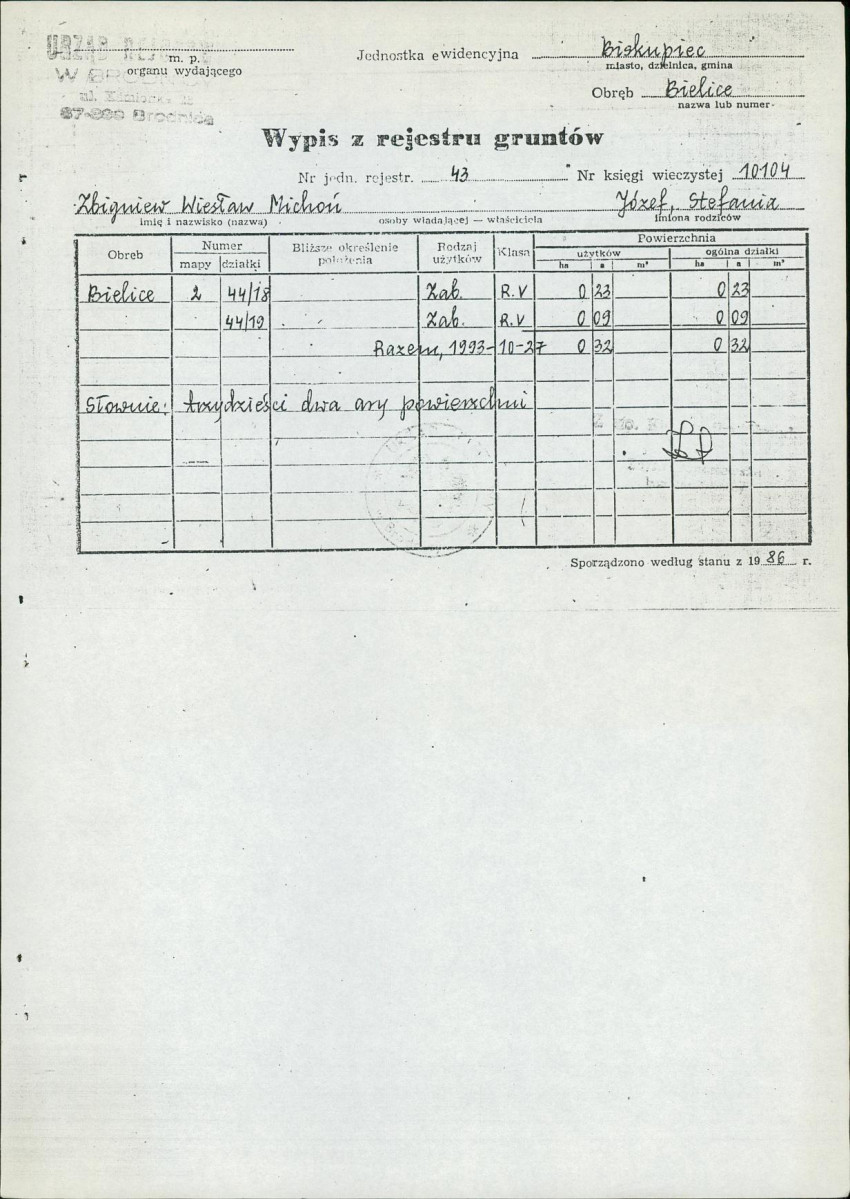 URZĄD REJONOWY
m. p.
W BRODNICY
organu wydającego
87-300 Brodnica
Jednostka ewidencyjna Biskupiec
miasto, dzielnica, gmina
Obręb Bielice
nazwa lub numer
Wypis z rejestru gruntów
Nr jedn. rejestr. 43 Nr księgi wieczystej 10104
Zbigniew Wiesław Michoń Józef, Stefania
imię i nazwisko (nazwa) osoby władającej — właściciela imiona rodziców
Obręb Numer Bliższe określenie położenia Rodzaj użytków Klasa Powierzchnia
mapy działki użytków ogólna działki
ha a m² ha a m²
Bielice 2 44/18 Zab. R.V 0 23 0 23
44/19 Zab. R.V 0 09 0 09
Razem, 1993-10-27 0 32 0 32
Słownie: trzydzieści dwa ary powierzchni
Sporządzono według stanu z 1986 r.